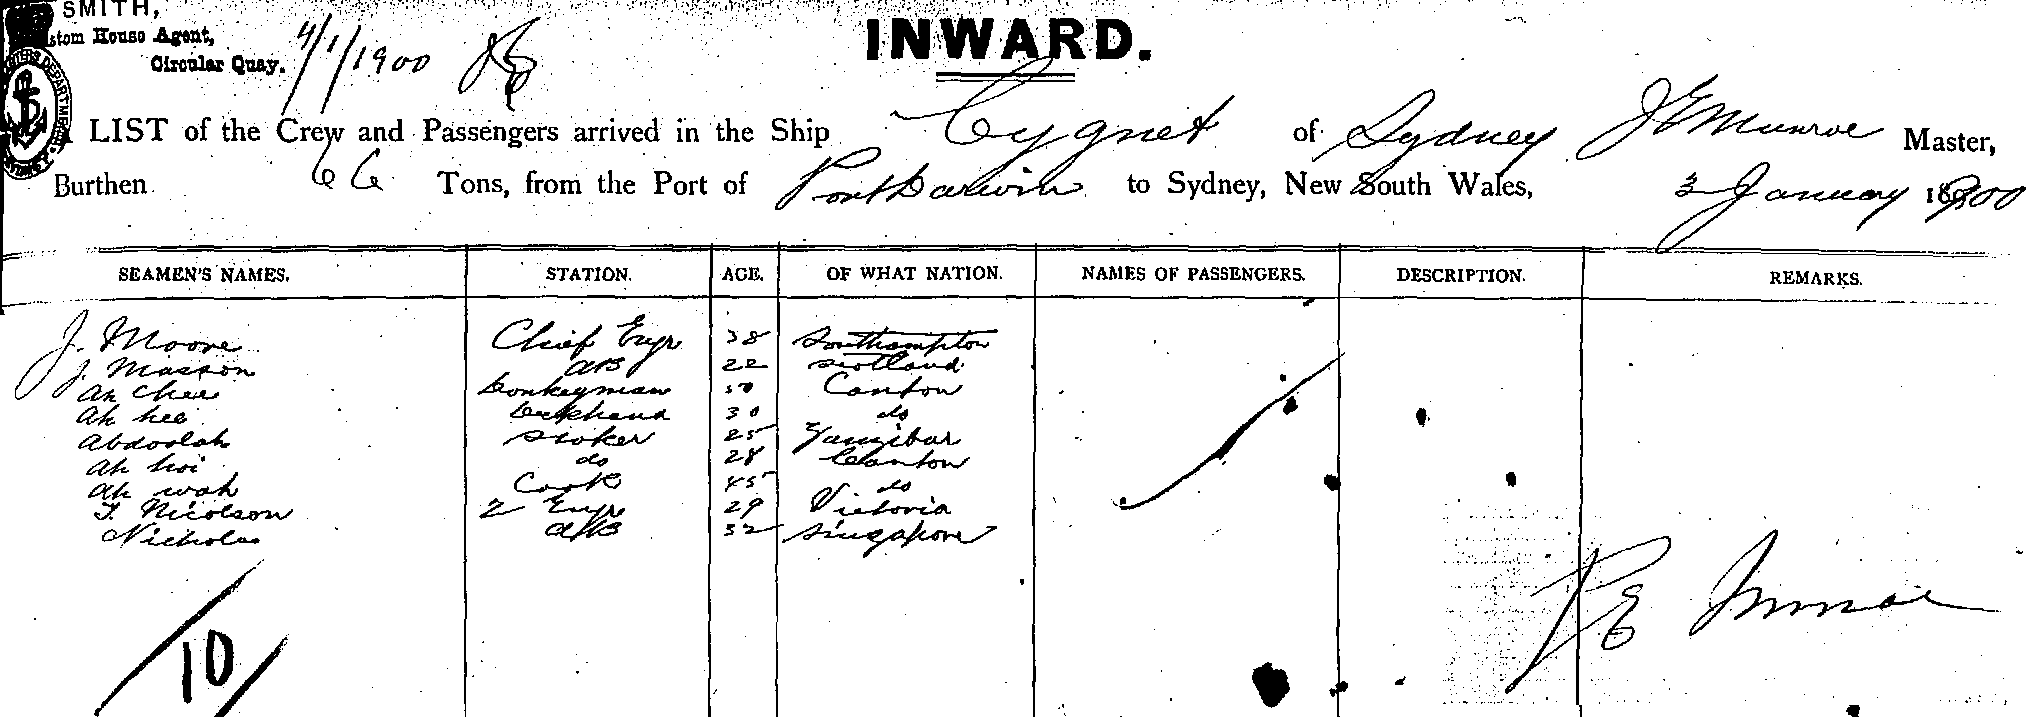 SMITH,
Custom House Agent,
Circular Quay.
4/1/1900
INWARD.
A LIST of the Crew and Passengers arrived in the Ship Cygnet of Sydney J E Munroe Master,
Burthen 66 Tons, from the Port of Port Darwin to Sydney, New South Wales, 3 January 1900
SEAMEN'S NAMES. STATION. AGE. OF WHAT NATION. NAMES OF PASSENGERS. DESCRIPTION. REMARKS.
J. Moore Chief Engr 38 Southampton
J. Masson AB 22 Scotland
Ah Chee Donkeyman 50 Canton
Ah hee Deckhand 30 do
Abdoolah Stoker 25 Zanzibar
Ah hoi do 28 Canton
Ah wah Cook 45 do
T. Nicolson 2 Engr 29 Victoria
Nicholas A/B 32 Singapore
J E Munroe
10